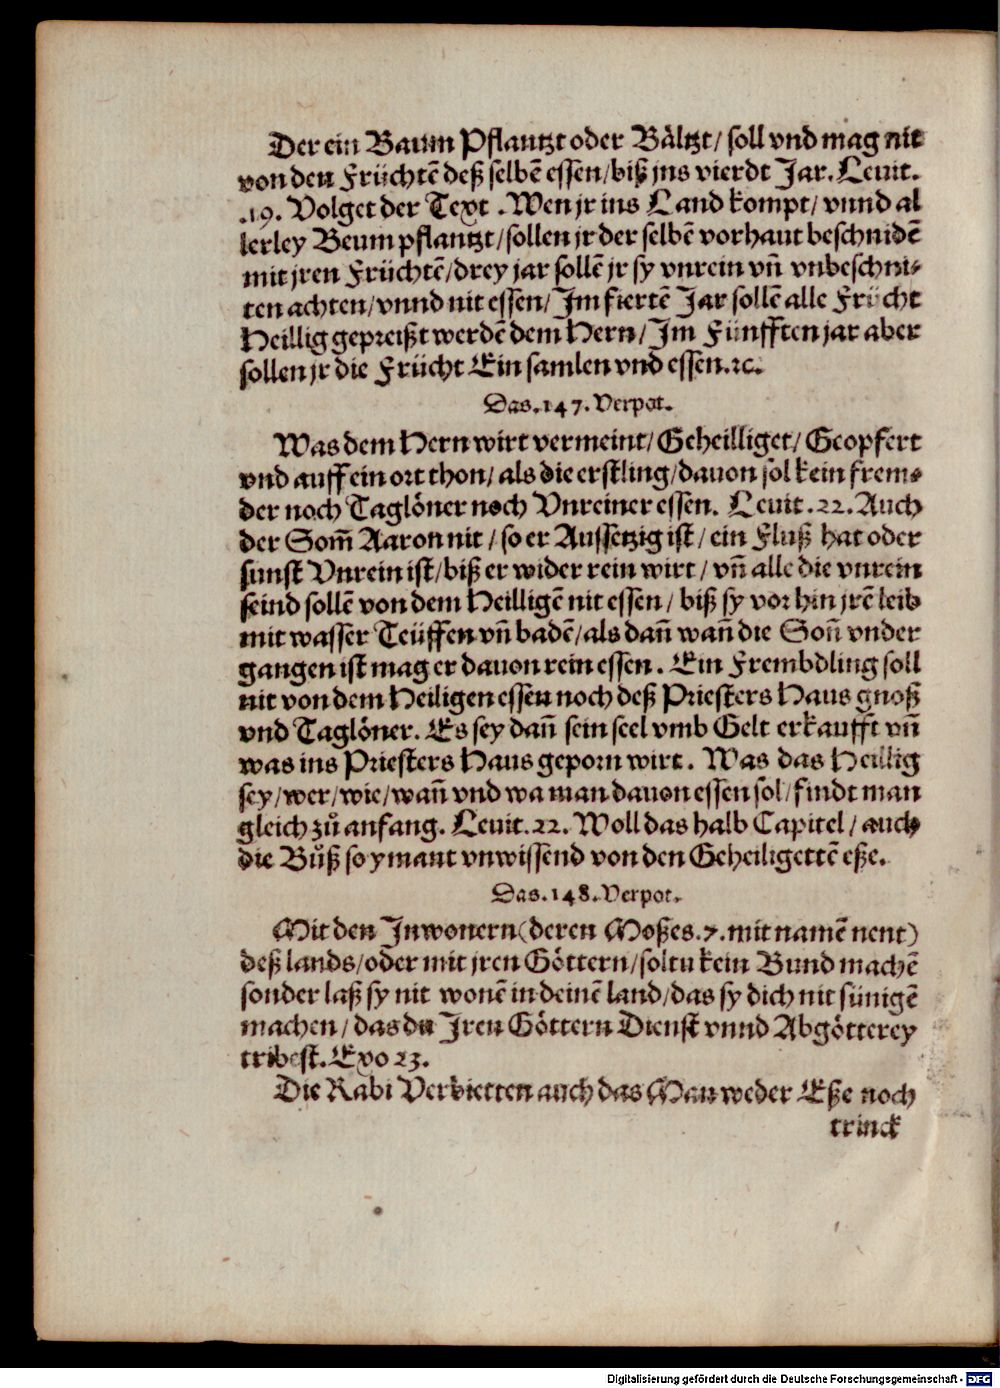 Der ein Baum Pflantzt oder Bältzt/ soll vnd mag nit
von den Früchtẽ deß selbẽ essen/biß jns vierdt Jar. Leuit.
.19. Volget der Text .Wen jr ins Land kompt/ vnnd al
lerley Beum pflantzt/sollen jr der selbẽ vorhaut beschnidẽ
mit jren Früchtẽ/drey jar sollẽ jr sy vnrein vñ vnbeschni⸗
ten achten/vnnd nit essen/Jm fiertẽ Jar sollẽ alle Frücht
Heillig gepreißt werdẽ dem Hern/Jm Fünfften jar aber
sollen jr die Frücht Ein samlen vnd essen.ꝛc.
Das.147.Verpot.
Was dem Hern wirt vermeint/Geheilliget/Geopfert
vnd auff ein ort thon/als die erstling/dauon sol kein frem⸗
der noch Taglöner noch Vnreiner essen. Leuit.22.Auch
der Som̃ Aaron nit/so er Aussetzig ist/ein Fluß hat oder
sunst Vnrein ist/biß er wider rein wirt/vñ alle die vnrein
seind sollẽ von dem Heilligẽ nit essen/biß sy vor hin jrẽ leib
mit wasser Teüffen vñ badẽ/als dañ wañ die Soñ vnder
gangen ist mag er dauon rein essen. Ein Frembdling soll
nit von dem Heiligen essen noch deß Priesters Haus gnoß
vnd Taglöner. Es sey dañ sein seel vmb Gelt erkaufft vñ
was ins Priesters Haus geporn wirt. Was das Heillig
sey/wer/wie/wañ vnd wa man dauon essen sol/findt man
gleich zů anfang. Leuit.22.Woll das halb Capitel/auch
die Bůß so ymant vnwissend von den Geheiligettẽ eße.
Das.148.Verpot.
Mit den Jnwonern(deren Moßes.7.mit namẽ nent)
deß lands/oder mit jren Göttern/soltu kein Bund machẽ
sonder laß sy nit wonẽ in deinẽ land/das sy dich nit sünigẽ
machen/das du Jren Göttern Dienst vnnd Abgötterey
tribest.Exo 23.
Die Rabi Verbietten auch das Man weder Eße noch
trinck
Digitalisierung gefördert durch die Deutsche Forschungsgemeinschaft - DFG